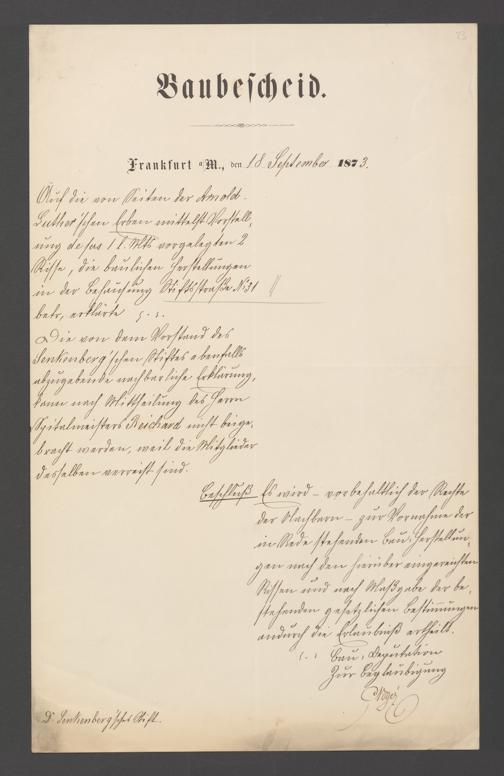 23
Baubescheid.
Frankfurt a/M., den 18 September 1873.
Auf die von Seiten der Arnold
Luther'schen Erben mittelst Vorstell,
ung de 1 l. Mts vorgelegten 2
Risse, die baulichen Herstellungen
in der Behausung Stiftsstraße No 31
betr, erklärte
Die von dem Vorstand des
Senkenberg'schen Stiftes ebenfalls
abzugebende nachbarliche Erklärung,
kann nach Mittheilung des Herrn
Spitalmeisters Reichard nicht beige,
bracht werden, weil die Mitglieder
desselben verreist sind.
Beschluß Es wird – vorbehaltlich der Rechte
der Nachbarn – zur Vornahme der
in Rede stehenden Bau-Herstellun,
gen nach den hierüber eingereichten
Rissen und nach Maßgabe der be,
stehenden gesetzlichen Bestimmungen
andurch die Erlaubniß ertheilt.
Bau-Deputation
Zur Beglaubigung
Dr Senkenberg'sches Stift.